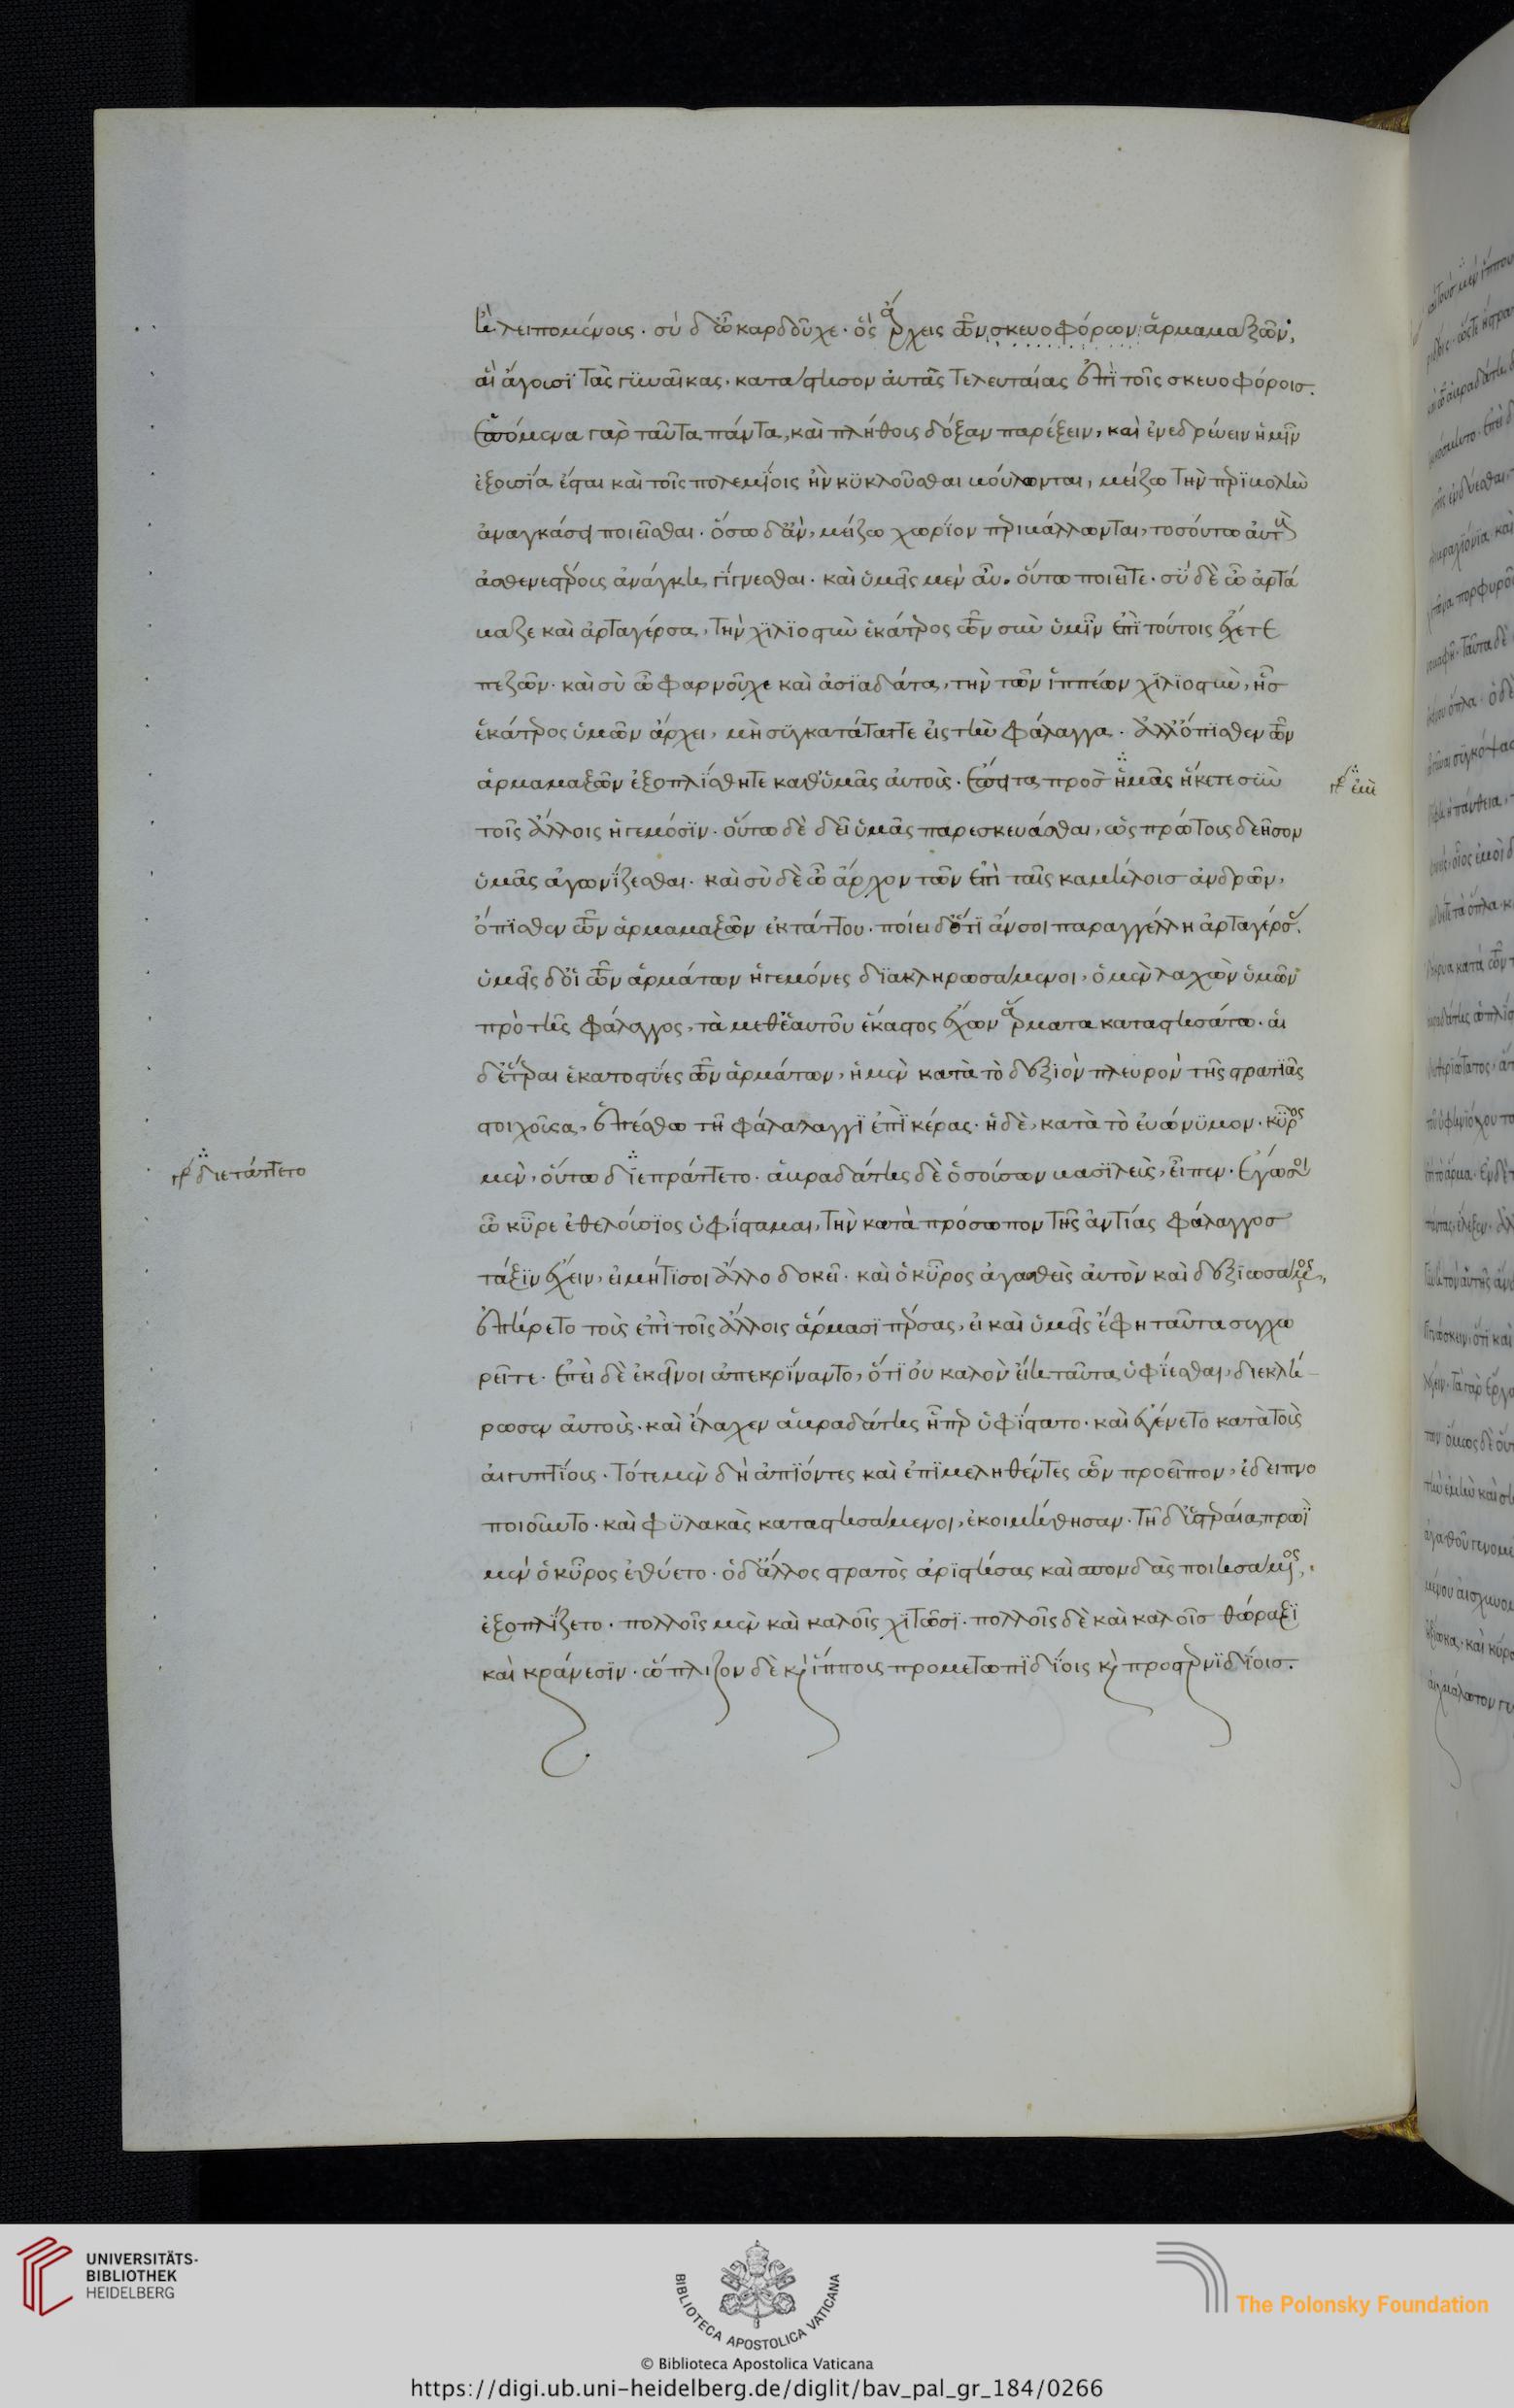 ἢ λειπομένοις· σὺ δ' ὦ καρδοῦχε· ὃς ἄρχεις τῶν σκευοφόρων ἁρμαμαξῶν,
αἳ ἄγουσϊ τὰς γϋναῖκας· κατάστησον αὐτὰς τελευταίας ἐπὶ τοῖς σκευοφόροισ.
ἑπόμενα γὰρ ταῦτα πάντα, καὶ πλήθους δόξαν παρέξειν, καὶ ἐνεδρεύειν ἡμῖν
ἐξουσία ἔσται καὶ τοῖς πολεμίοις ἢν κϋκλοῦσθαι βούλωνται, μείζω τὴν περιβολὴν
ἀναγκάσει ποιεῖσθαι· ὅσω δ' ἂν, μείζω χωρίον περιβάλλωνται, τοσούτω αὐτοὺς
ἀσθενεστέρους ἀνάγκη γίγνεσθαι· καὶ ὑμεῖς μὲν οὖν· οὕτω ποιεῖτε· σὺ δὲ ὦ ἀρτά
βαζε καὶ ἀρταγέρσα, τὴν χϊλϊοστὺν ἑκάτερος τῶν σὺν ὑμῖν ἐπὶ τούτοις ἔχετε
πεζῶν· καὶ σὺ ὦ φαρνοῦχε καὶ ἀσϊαδάτα, τὴν τῶν ἱππέων χϊλϊοστὺν, ἧσ
ἑκάτερος ὑμῶν ἄρχει, μὴ σϋγκατάταττε εἰς τὴν φάλαγγα· ἀλλ' ὄπϊσθεν τῶν
ἁρμαμαξῶν ἐξοπλίσθητε καθ' ὑμᾶς αὐτούς· ἔπειτα προσ ἡμᾶς ἥκετε σὺν
τοῖς ἄλλοις ἡγεμόσϊν· οὕτω δὲ δεῖ ὑμᾶς παρεσκευάσθαι, ὡς πρώτους δεῆσον
ὑμᾶς ἀγωνίζεσθαι· καὶ σὺ δὲ ὦ ἄρχον τῶν ἐπὶ ταῖς καμήλοισ ἀνδρῶν,
ὄπϊσθεν τῶν ἁρμαμαξῶν ἐκτάττου· ποίει δ' ὅ,τι ἄν σοι παραγγέλλη ἀρταγέρσας.
ὑμεῖς δ' οἱ τῶν ἁρμάτων ἡγεμόνες δϊακληρωσάμενοι, ὁ μὲν λαχὼν ὑμῶν
πρὸ τῆς φάλαγγος, τὰ μεθ' ἑαυτοῦ ἑκαστος ἔχων ἅρματα καταστησάτω· αἱ
δ' ἕτεραι ἑκατοστύες τῶν ἁρμάτων, ἡ μὲν κατὰ τὸ δεξϊὸν πλευρὸν τῆς στρατιᾶς
στοιχοῦσα, ἑπέσθω τῆ φάλαλαγγϊ ἐπὶ κέρας· ἡ δὲ, κατὰ τὸ εὐώνϋμον· κῦρος
μὲν, οὕτω δϊεπράττετο· ἀβραδάτης δὲ ὁ σούσων βασϊλεὺς, εἶπεν· ἐγώ σοι
ὦ κῦρε ἐθελούσϊος ὑφίσταμαι, τὴν κατὰ πρόσωπον τῆς ἀντίας φάλαγγοσ
τάξϊν ἔχειν, εἰ μή τϊ σοι ἄλλο δοκεῖ· καὶ ὁ κῦρος ἀγασθεὶς αὐτὸν καὶ δεξϊωσάμενος,
ἐπήρετο τοὺς ἐπὶ τοῖς ἄλλοις ἅρμασϊ πέρσας, εἰ καὶ ὑμεῖς ἔφη ταῦτα συγχω
ρεῖτε· ἐπεὶ δὲ ἐκεῖνοι ἀπεκρίναντο, ὅτϊ οὐ καλὸν εἴη ταῦτα ὑφίεσθαι, διεκλή-
ρωσεν αὐτοὺς· καὶ ἔλαχεν ἀβραδάτης ἧπερ ὑφίστατο· καὶ ἐγένετο κατὰ τοὺς
αἰγυπτίους· τότε μὲν δὴ ἀπϊόντες καὶ ἐπϊμεληθέντες ὧν προεῖπον, ἐδειπνο
ποιοῦντο· καὶ φϋλακὰς καταστησάμενοι, ἐκοιμήθησαν· τῆ δ' ὑστεραία, πρωῒ
μὲν ὁ κῦρος ἐθύετο· ὁ δ' ἄλλος στρατὸς ἀρϊστήσας καὶ σπονδὰς ποιησάμενος,
ἐξοπλίζετο· πολλοῖς μὲν καὶ καλοῖς χϊτῶσϊ· πολλοῖς δὲ καὶ καλοῖσ θώραξϊ
καὶ κράνεσϊν· ὥπλιζον δὲ κ̀ ἵππους προμετωπϊδίοις κ̀ προστερνϊδίοισ.
γρ ἐμὲ
γρ διετάττετο
UNIVERSITÄTS-
BIBLIOTHEK
HEIDELBERG
BIBLIOTECA APOSTOLICA VATICANA
The Polonsky Foundation
© Biblioteca Apostolica Vaticana
https://digi.ub.uni-heidelberg.de/diglit/bav_pal_gr_184/0266